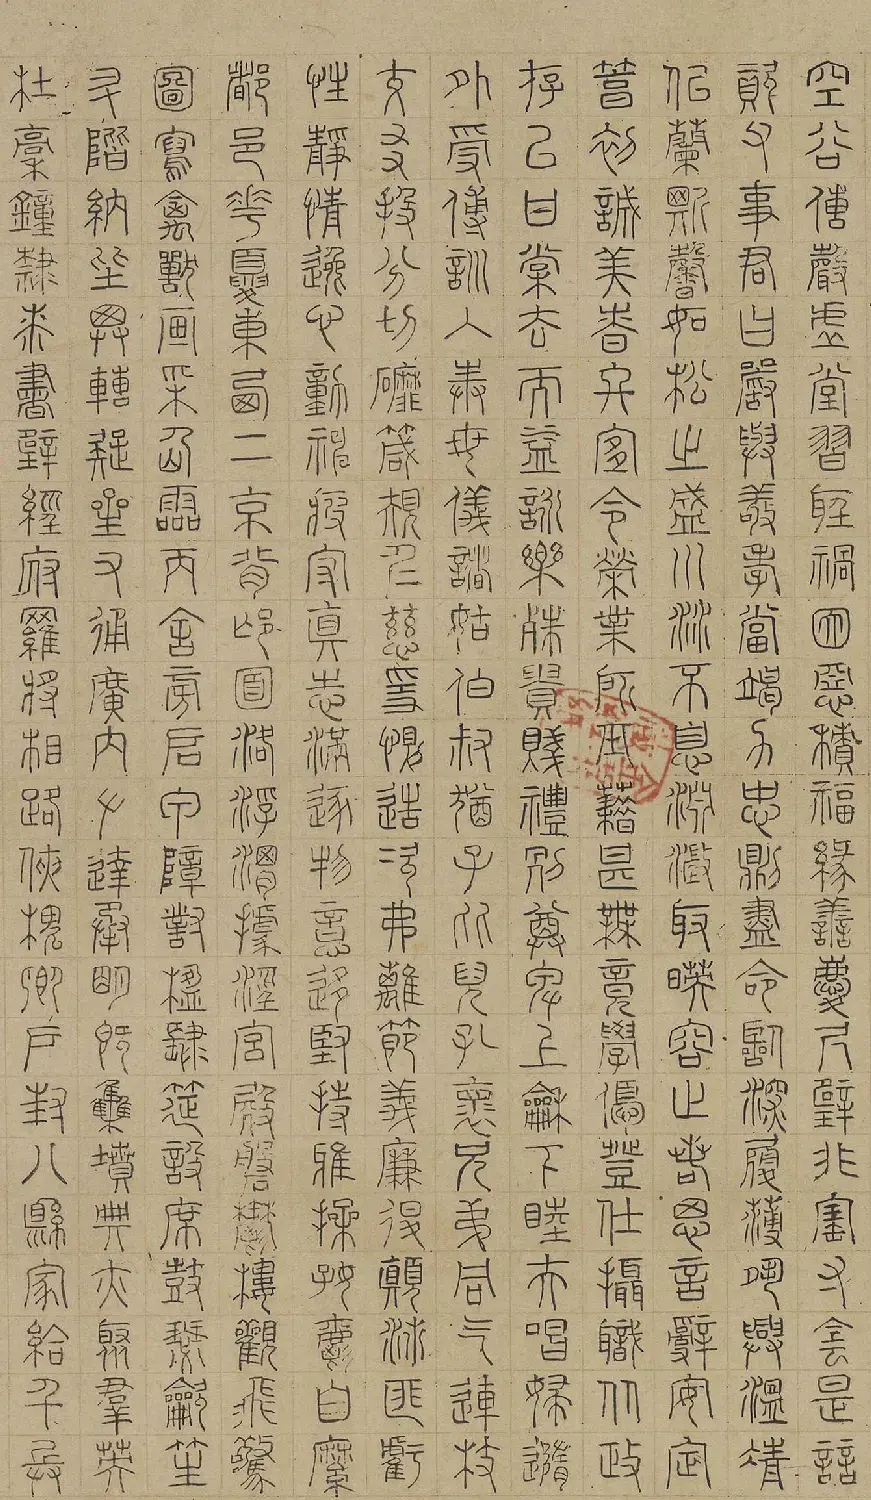 空谷傳聲虛堂習聽禍因惡積福緣善慶尺璧非寶寸陰是競
資父事君曰嚴與敬孝當竭力忠則盡命臨深履薄夙興溫凊
似蘭斯馨如松之盛川流不息淵澄取映容止若思言辭安定
篤初誠美慎終宜令榮業所基藉甚無竟學優登仕攝職從政
存以甘棠去而益詠樂殊貴賤禮別尊卑上和下睦夫唱婦隨
外受傅訓入奉母儀諸姑伯叔猶子比兒孔懷兄弟同气連枝
交友投分切磨箴規仁慈隱惻造次弗離節義廉退顛沛匪虧
性靜情逸心動神疲守真志滿逐物意移堅持雅操好爵自縻
都邑華夏東西二京背邙面洛浮渭據涇宮殿盤鬱樓觀飛驚
圖寫禽獸畫采仙靈丙舍傍啟甲帳對楹肆筵設席鼓瑟吹笙
升階納陛弁轉疑星右通廣內左達承明既集墳典亦聚羣英
杜稾鐘隸漆書壁經府羅將相路俠槐卿戶封八縣家給千兵